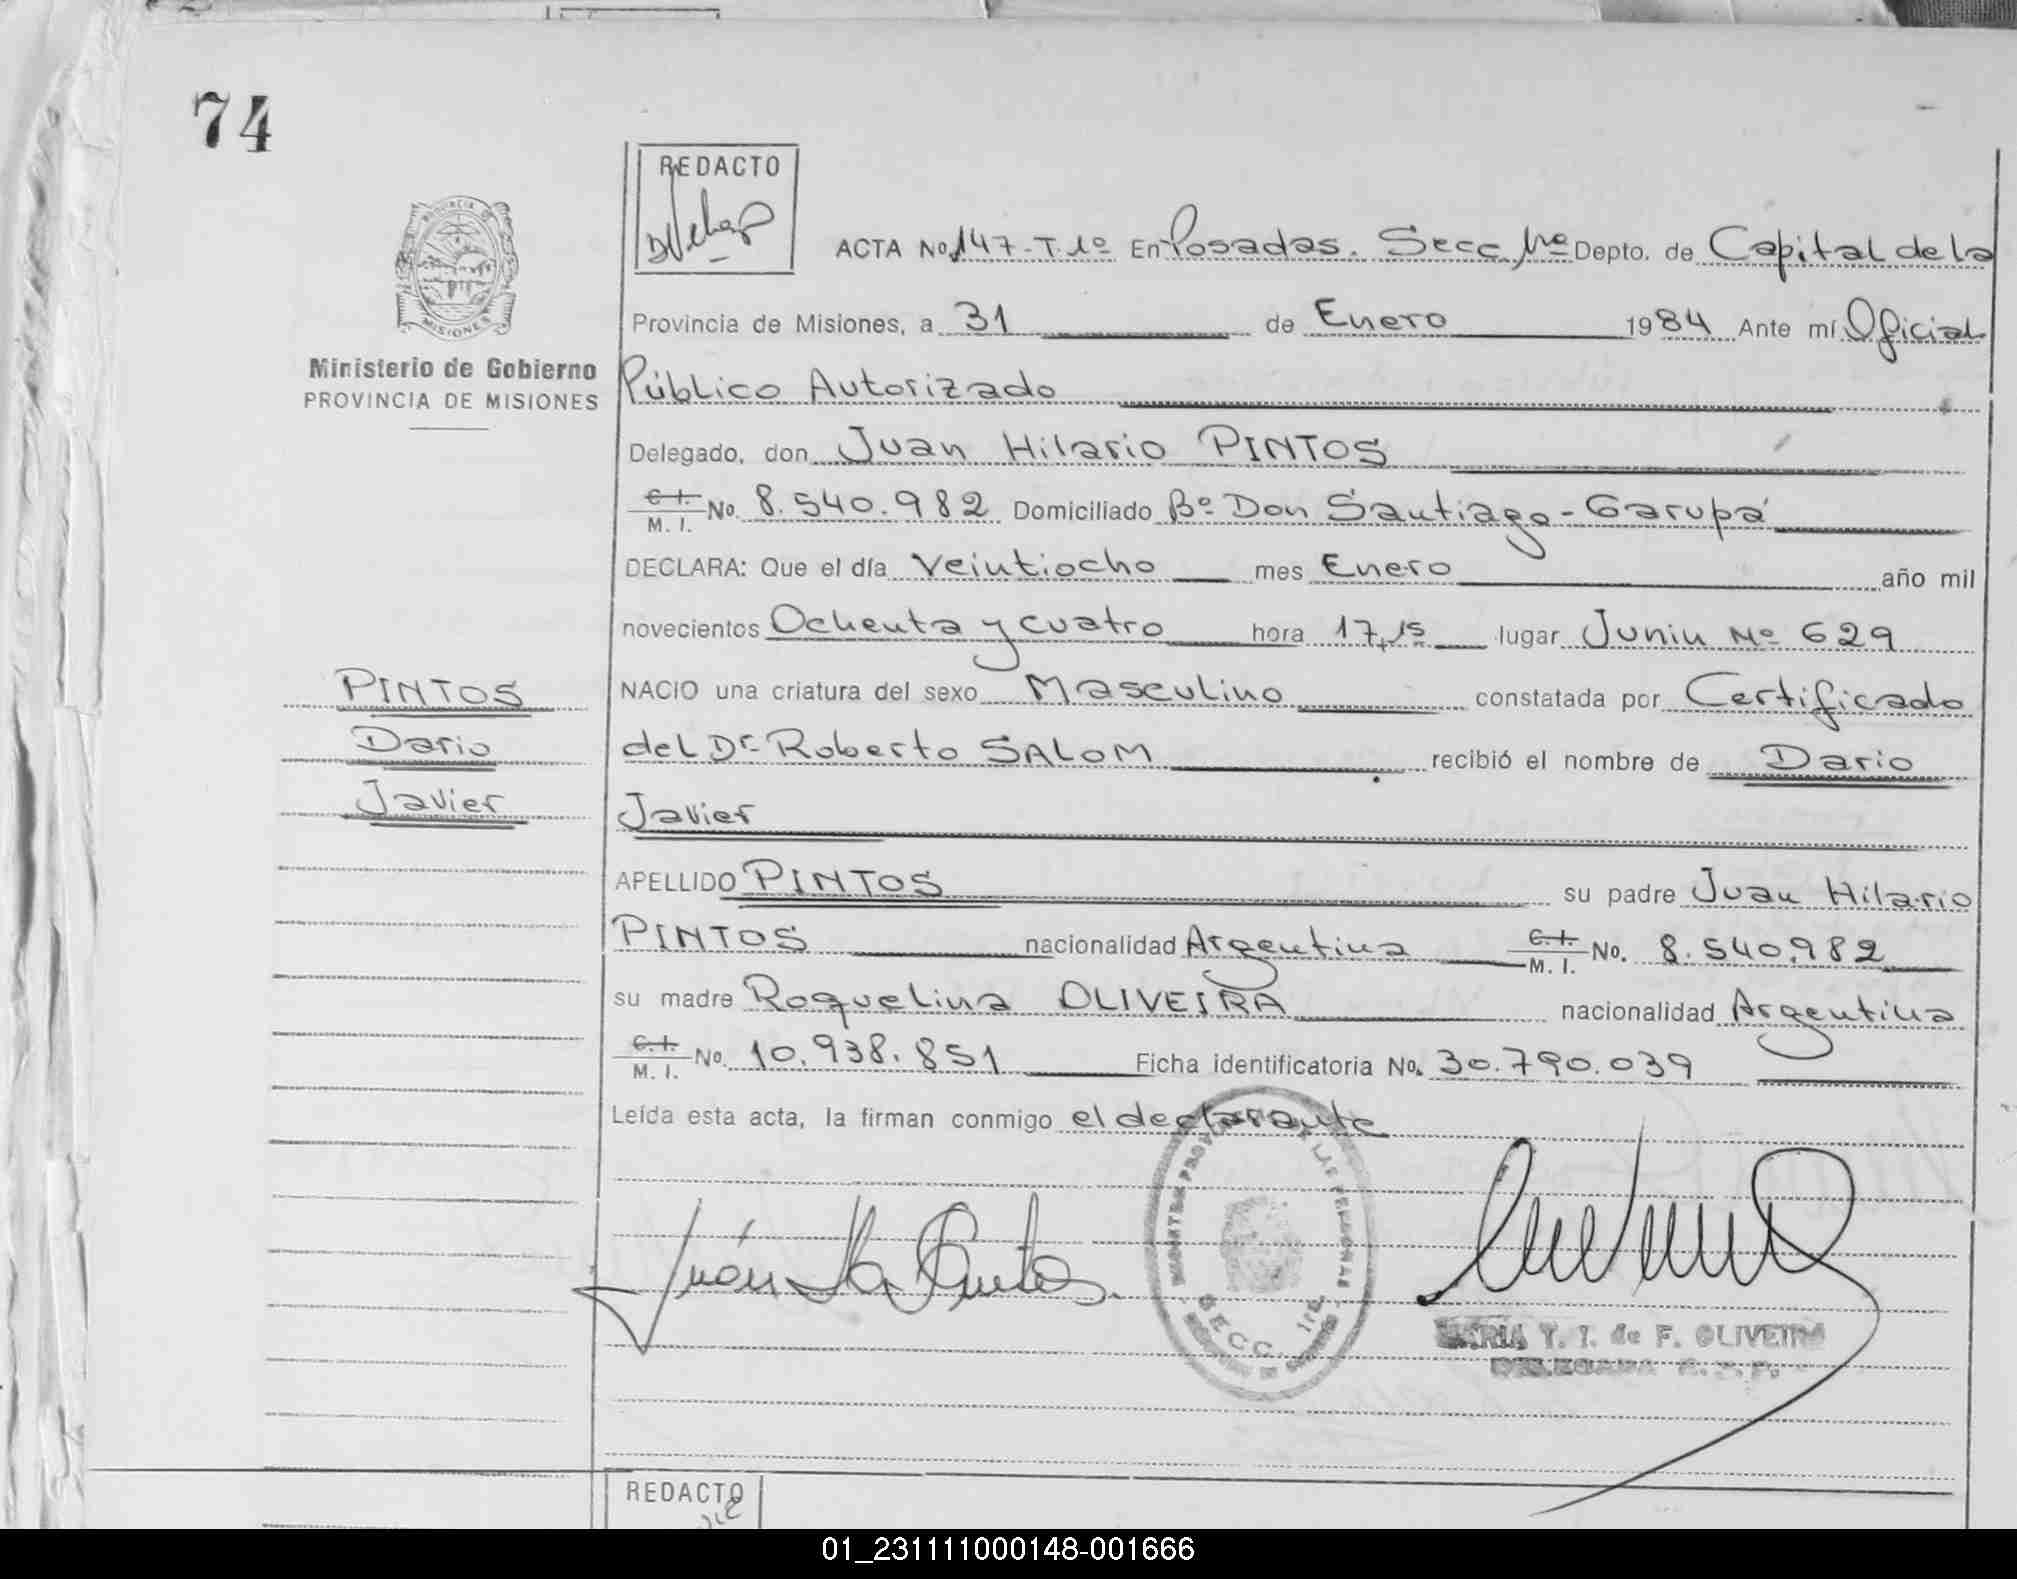 74
REDACTO
PROVINCIA DE
MISIONES
Ministerio de Gobierno
PROVINCIA DE MISIONES
ACTA No. 147-T.1º En Posadas. Secc. 1ra Depto. de Capital de la
Provincia de Misiones, a 31 de Enero 1984 Ante mí Oficial
Público Autorizado
Delegado, don Juan Hilario PINTOS
C.I. M. I. No. 8.540.982 Domiciliado Bº Don Santiago - Garupá
DECLARA: Que el día Veintiocho mes Enero año mil
novecientos Ochenta y cuatro hora 17,15 lugar Junin Nº 629
PINTOS
Dario
Javier
NACIO una criatura del sexo Masculino constatada por Certificado
del Dr. Roberto SALOM recibió el nombre de Dario
Javier
APELLIDO PINTOS su padre Juan Hilario
PINTOS nacionalidad Argentina C.I. M. I. No. 8.540.982
su madre Roquelina OLIVEIRA nacionalidad Argentina
C.I. M. I. No. 10.938.851 Ficha identificatoria No. 30.790.039
Leída esta acta, la firman conmigo el declarante
SECC. 1ra.
MARIA Y. I. de F. OLIVEIRA
DELEGADA
REDACTO
01_231111000148-001666